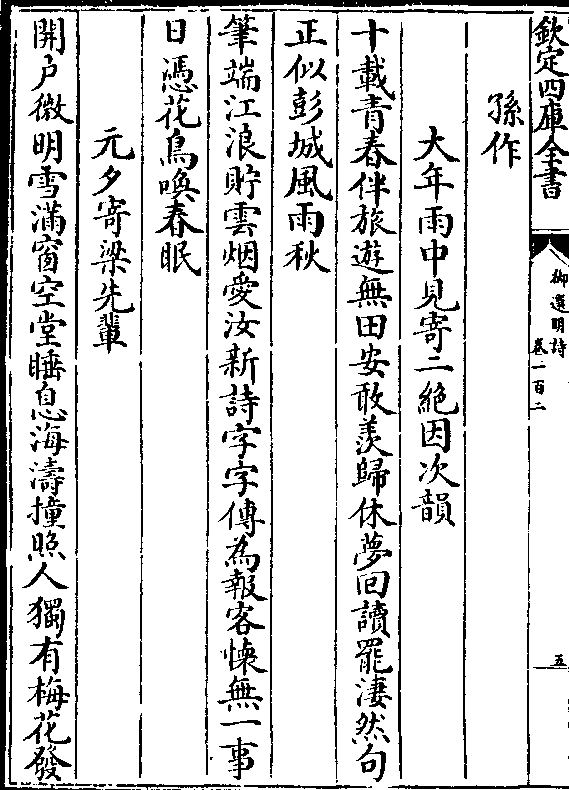 欽定四庫全書
御選明詩
卷一百二
五
孫作
大年雨中見寄二絶因次韻
十載青春伴旅遊無田安敢羡歸休夢回讀罷淒然句
正似彭城風雨秋
筆端江浪貯雲烟愛汝新詩字字傳為報客懐無一事
日憑花鳥喚春眠
元夕寄梁先輩
開户微明雪滿窗空堂睡息海濤撞照人獨有梅花發